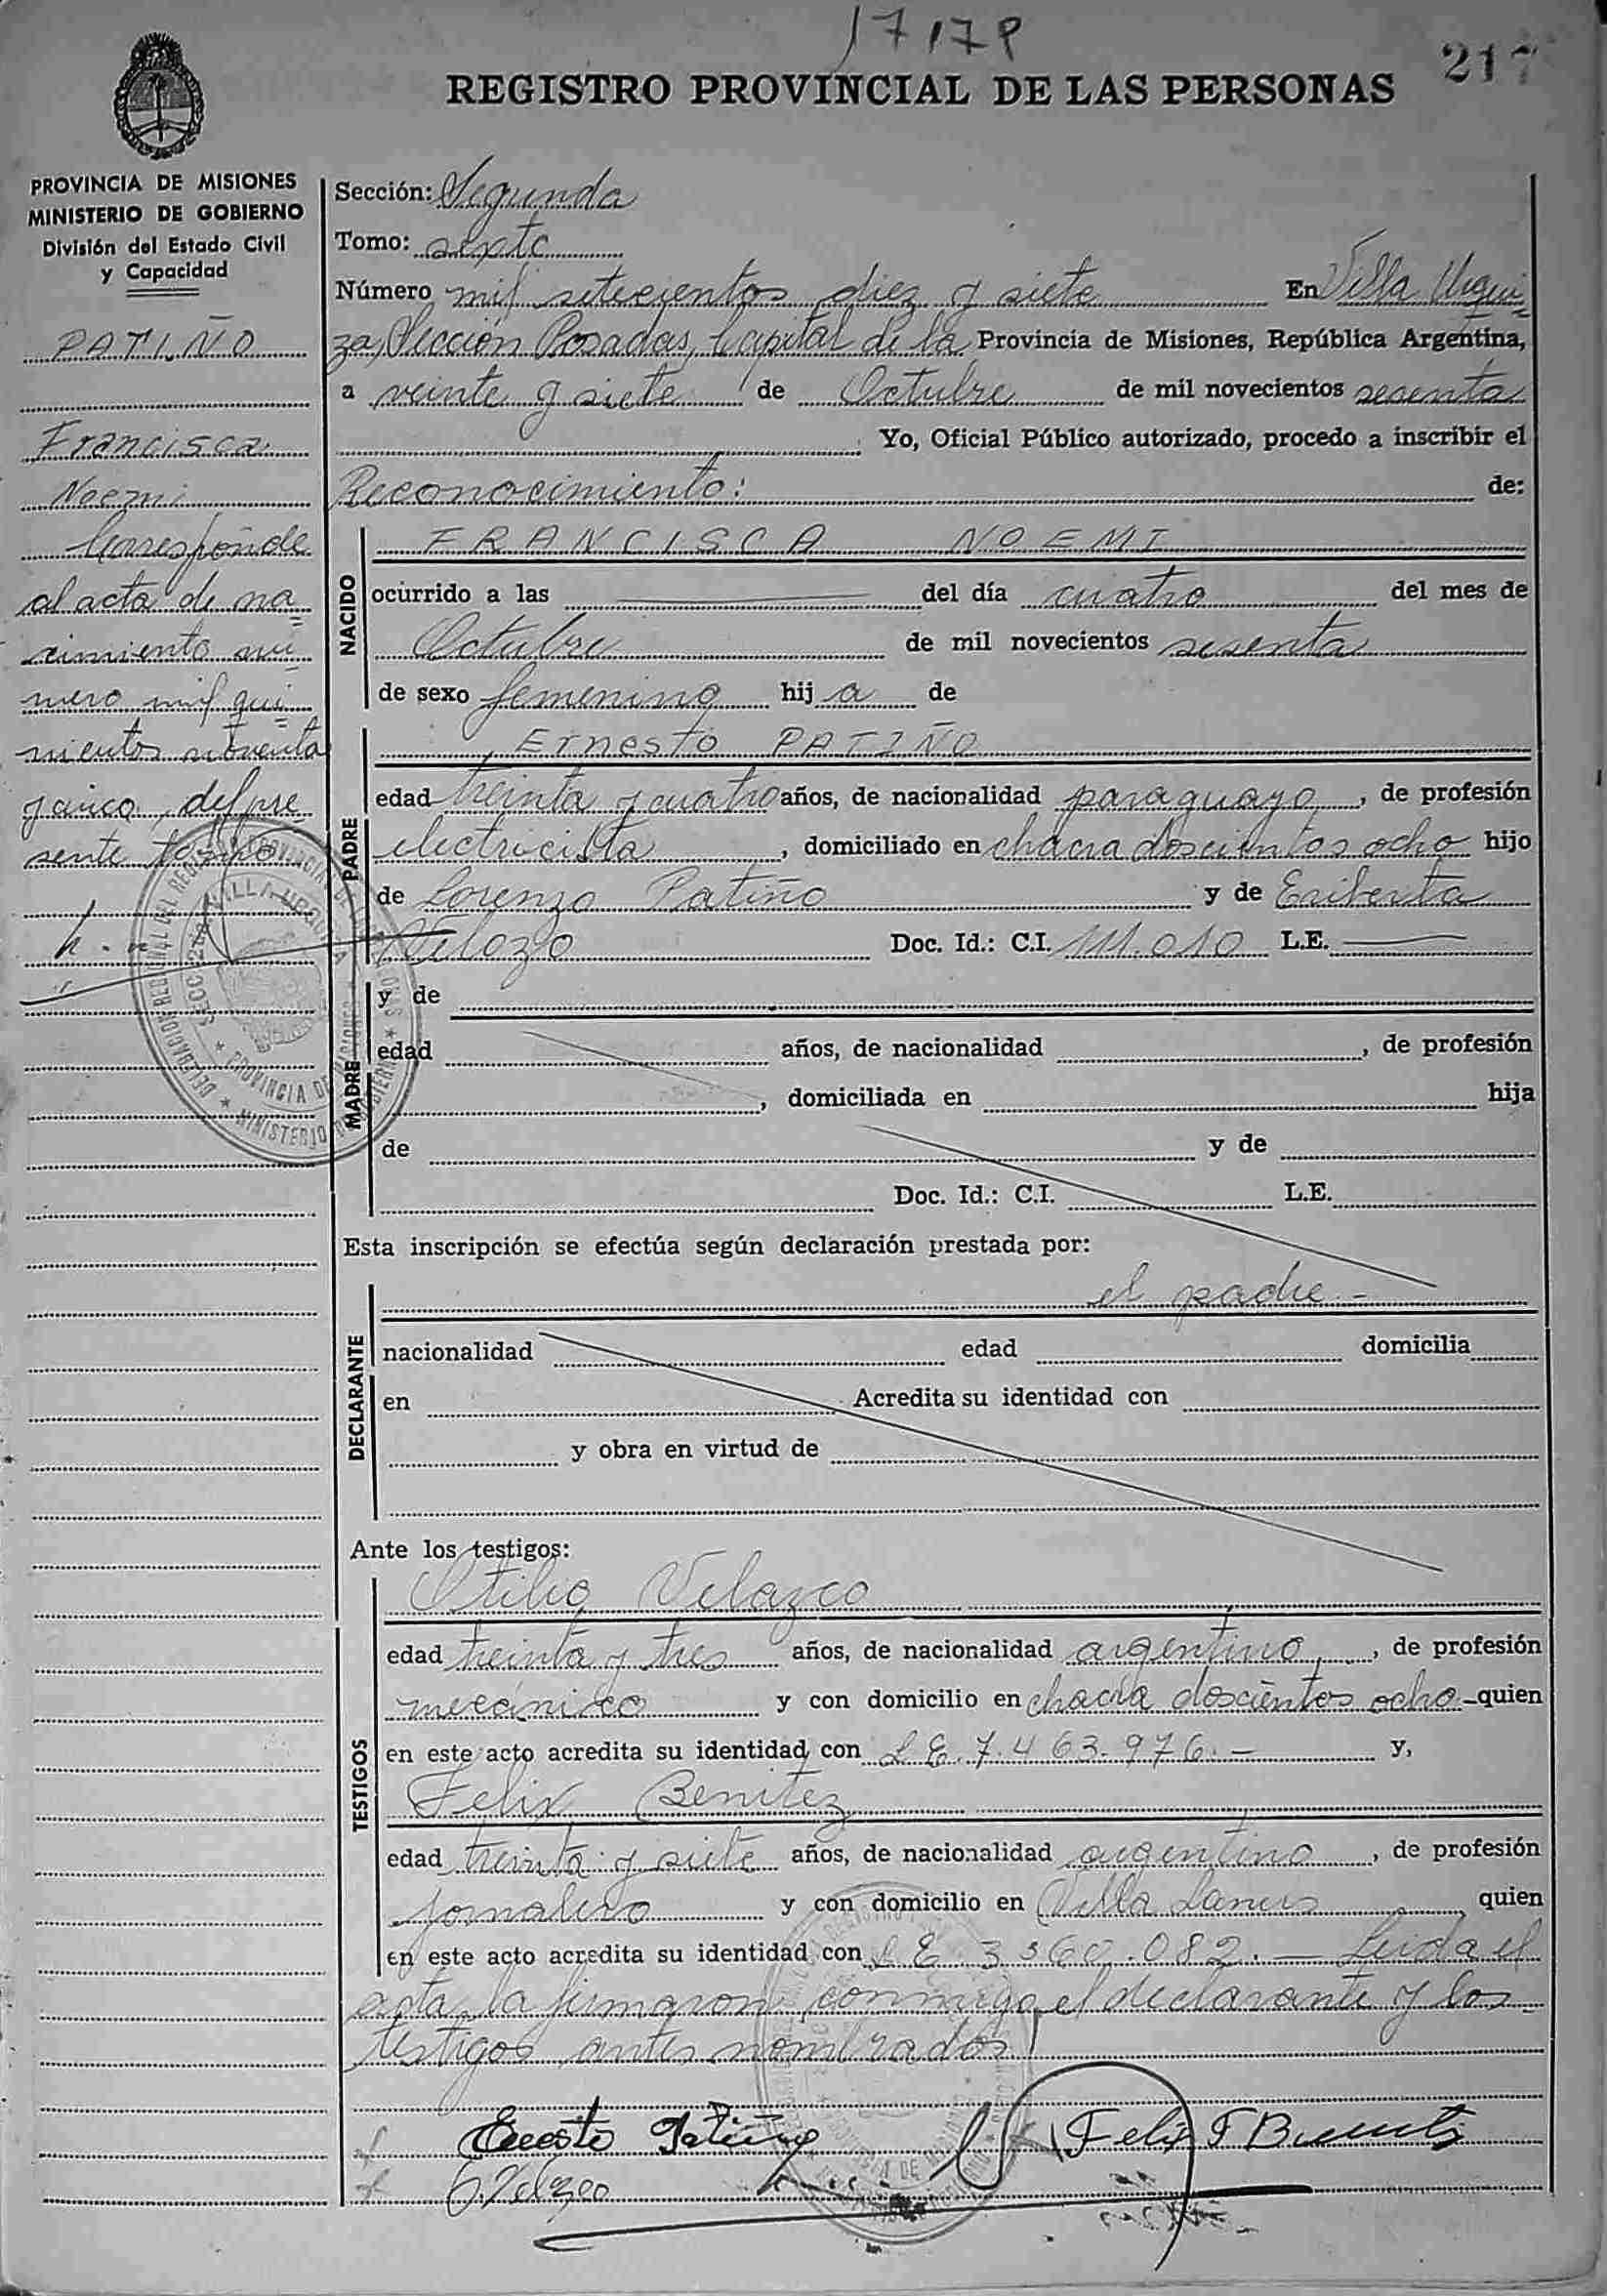 17178
217
REGISTRO PROVINCIAL DE LAS PERSONAS
PROVINCIA DE MISIONES
MINISTERIO DE GOBIERNO
División del Estado Civil
y Capacidad
PATIÑO
Francisca
Noemi
Corresponde
al acta de na
cimiento nú
mero mil qui
nientos noventa
y cinco, del pre
sente tomo
Sección: Segunda
Tomo: sexto
Número mil setecientos diez y siete En Villa Urqui
za, Sección Posadas, Capital de la Provincia de Misiones, República Argentina,
a veinte y siete de Octubre de mil novecientos sesenta
Yo, Oficial Público autorizado, procedo a inscribir el
Reconocimiento: de:
NACIDO
FRANCISCA NOEMI
ocurrido a las del día cuatro del mes de
Octubre de mil novecientos sesenta
de sexo femenino hij a de
PADRE
Ernesto PATIÑO
edad treinta y cuatro años, de nacionalidad paraguayo, de profesión
electricista, domiciliado en chacra doscientos ocho hijo
de Lorenzo Patiño y de Eriberta
Velozo Doc. Id.: C.I. 111.010 L.E.
MADRE
y de
edad años, de nacionalidad , de profesión
, domiciliada en hija
de y de
Doc. Id.: C.I. L.E.
Esta inscripción se efectúa según declaración prestada por:
DECLARANTE
el padre.-
nacionalidad edad domicilia
en Acredita su identidad con
y obra en virtud de
Ante los testigos:
TESTIGOS
Otilio Velazco
edad treinta y tres años, de nacionalidad argentino, de profesión
mecánico y con domicilio en chacra doscientos ocho - quien
en este acto acredita su identidad con L E. 7.463.976.- y,
Felix Benitez
edad treinta y siete años, de nacionalidad argentino, de profesión
jornalero y con domicilio en Villa Lanus quien
en este acto acredita su identidad con L E 3 360.082.— Leida el
acta, la firmaron conmigo el declarante y los
testigos antes nombrados
Ernesto Patiño Felix F Benitez
O. Velazco